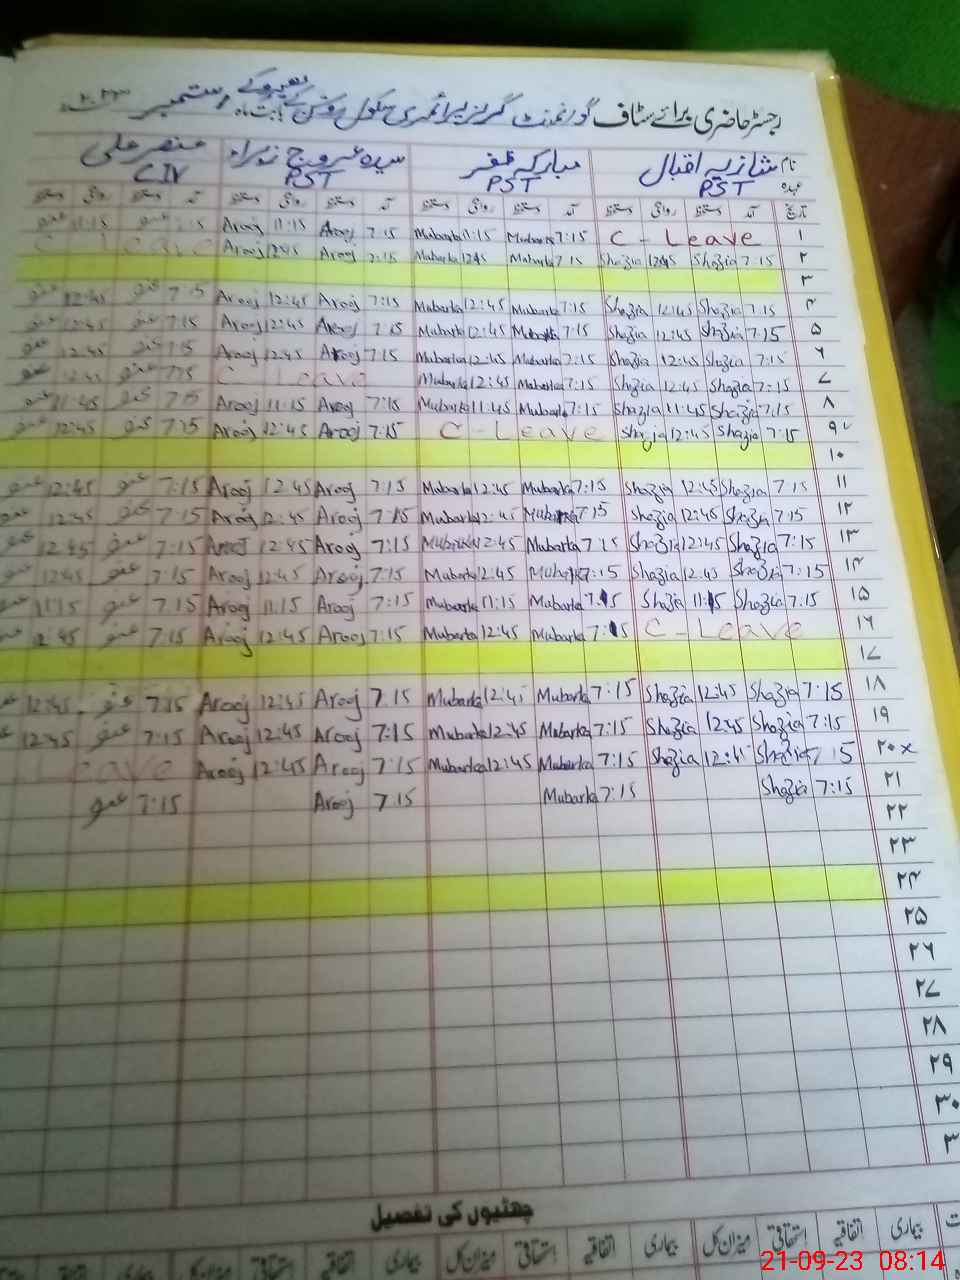 رجسٹر حاضری برائے سٹاف گورنمنٹ گرلز پرائمری سکول روشن بھیروکے بابت ماہ ستمبر ۲۰۲۳ء
نام شازیہ اقبال مبارکہ ظفر سیدہ عروج زہراء عنصر علی
عہدہ PST PST PST C IV
تاریخ آمد دستخط روانگی دستخط آمد دستخط روانگی دستخط آمد دستخط روانگی دستخط آمد دستخط روانگی دستخط
۱ C - Leave 7:15 Mubarka 11:15 Mubarka 7:15 Arooj 11:15 Arooj 7:15 11:15
۲ 7:15 Shazia 12:45 Shazia 7:15 Mubarka 12:45 Mubarka 7:15 Arooj 12:45 Arooj C Leave
۳
۴ 7:15 Shazia 12:45 Shazia 7:15 Mubarka 12:45 Mubarka 7:15 Arooj 12:45 Arooj 7:15 12:45
۵ 7:15 Shazia 12:45 Shazia 7:15 Mubarka 12:45 Mubarka 7:15 Arooj 12:45 Arooj 7:15 12:45
۶ 7:15 Shazia 12:45 Shazia 7:15 Mubarka 12:45 Mubarka 7:15 Arooj 12:45 Arooj 7:15 12:45
۷ 7:15 Shazia 12:45 Shazia 7:15 Mubarka 12:45 Mubarka C Leave 7:15 12:45
۸ 7:15 Shazia 11:45 Shazia 7:15 Mubarka 11:45 Mubarka 7:15 Arooj 11:15 Arooj 7:15 11:45
۹ 7:15 Shazia 12:45 Shazia C - Leave 7:15 Arooj 12:45 Arooj 7:15 12:45
۱۰
۱۱ 7:15 Shazia 12:45 Shazia 7:15 Mubarka 12:45 Mubarka 7:15 Arooj 12:45 Arooj 7:15 12:45
۱۲ 7:15 Shazia 12:45 Shazia 7:15 Mubarka 12:45 Mubarka 7:15 Arooj 12:45 Arooj 7:15 12:45
۱۳ 7:15 Shazia 12:45 Shazia 7:15 Mubarka 12:45 Mubarka 7:15 Arooj 12:45 Arooj 7:15 12:45
۱۴ 7:15 Shazia 12:45 Shazia 7:15 Mubarka 12:45 Mubarka 7:15 Arooj 12:45 Arooj 7:15 12:45
۱۵ 7:15 Shazia 11:15 Shazia 7:15 Mubarka 11:15 Mubarka 7:15 Arooj 11:15 Arooj 7:15 11:15
۱۶ C - Leave 7:15 Mubarka 12:45 Mubarka 7:15 Arooj 12:45 Arooj 7:15 12:45
۱۷
۱۸ 7:15 Shazia 12:45 Shazia 7:15 Mubarka 12:45 Mubarka 7:15 Arooj 12:45 Arooj 7:15 12:45
۱۹ 7:15 Shazia 12:45 Shazia 7:15 Mubarka 12:45 Mubarka 7:15 Arooj 12:45 Arooj 7:15 12:45
۲۰ x 7:15 Shazia 12:45 Shazia 7:15 Mubarka 12:45 Mubarka 7:15 Arooj 12:45 Arooj Leave
۲۱ 7:15 Shazia 7:15 Mubarka 7:15 Arooj 7:15
۲۲
۲۳
۲۴
۲۵
۲۶
۲۷
۲۸
۲۹
۳۰
۳
چھٹیوں کی تفصیل
بیماری اتفاقیہ استحقاقی میزان کل بیماری اتفاقیہ استحقاقی میزان کل بیماری اتفاقیہ استحقاقی
21-09-23 08:14